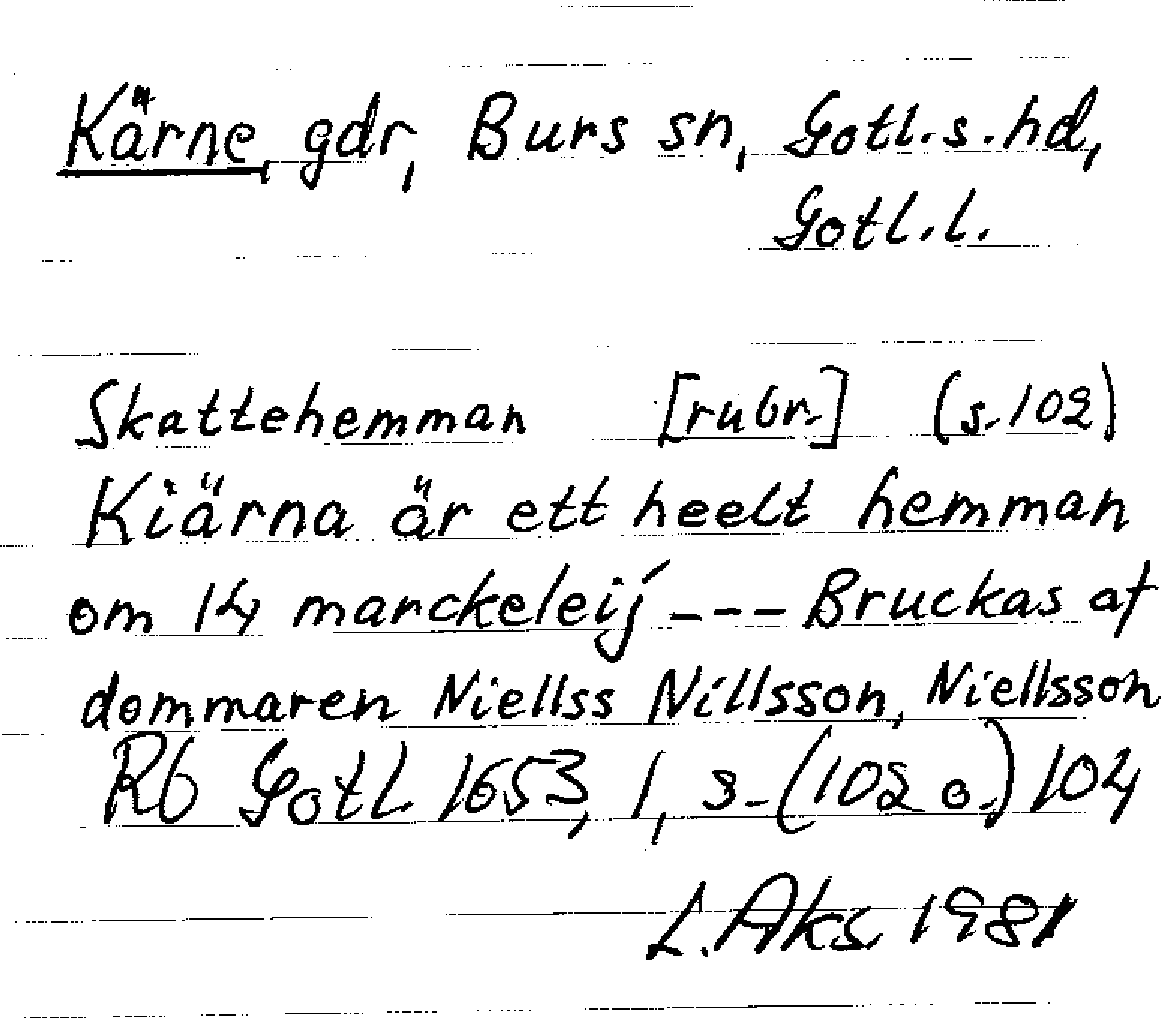 Kärne, gdr, Burs sn, Gotl.s.hd,
Gotl.l.
Skattehemman [rubr.] (s.102)
Kiärna är ett heelt hemman
om 14 marckeleij --- Bruckas af
dommaren Niellss Nillsson, Niellsson
Rb Gotl 1653, 1, s.(102 o.) 104
L.Aks. 1981